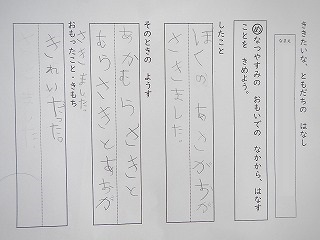 ききたいな、ともだちの はなし
なまえ
めなつやすみの おもいでの なかから、はなす
ことを きめよう。
したこと
ぼくの あさがおが
さきました。
そのときの ようす
あかむらさきと
むらさきとあおが
さきました。
おもったこと・きもち
きれいだった。